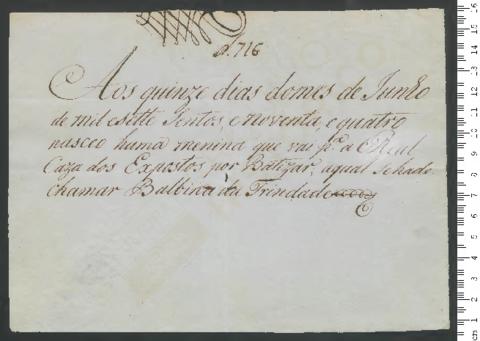 d. 716
Aos quinze dias domes de Junho
de mil esette Sentos, enoventa, e quatro
nasceo huma menina que vai p.ª a Real
Caza dos Expostos por Batizar, aqual Sehade
chamar Balbina da Trindade